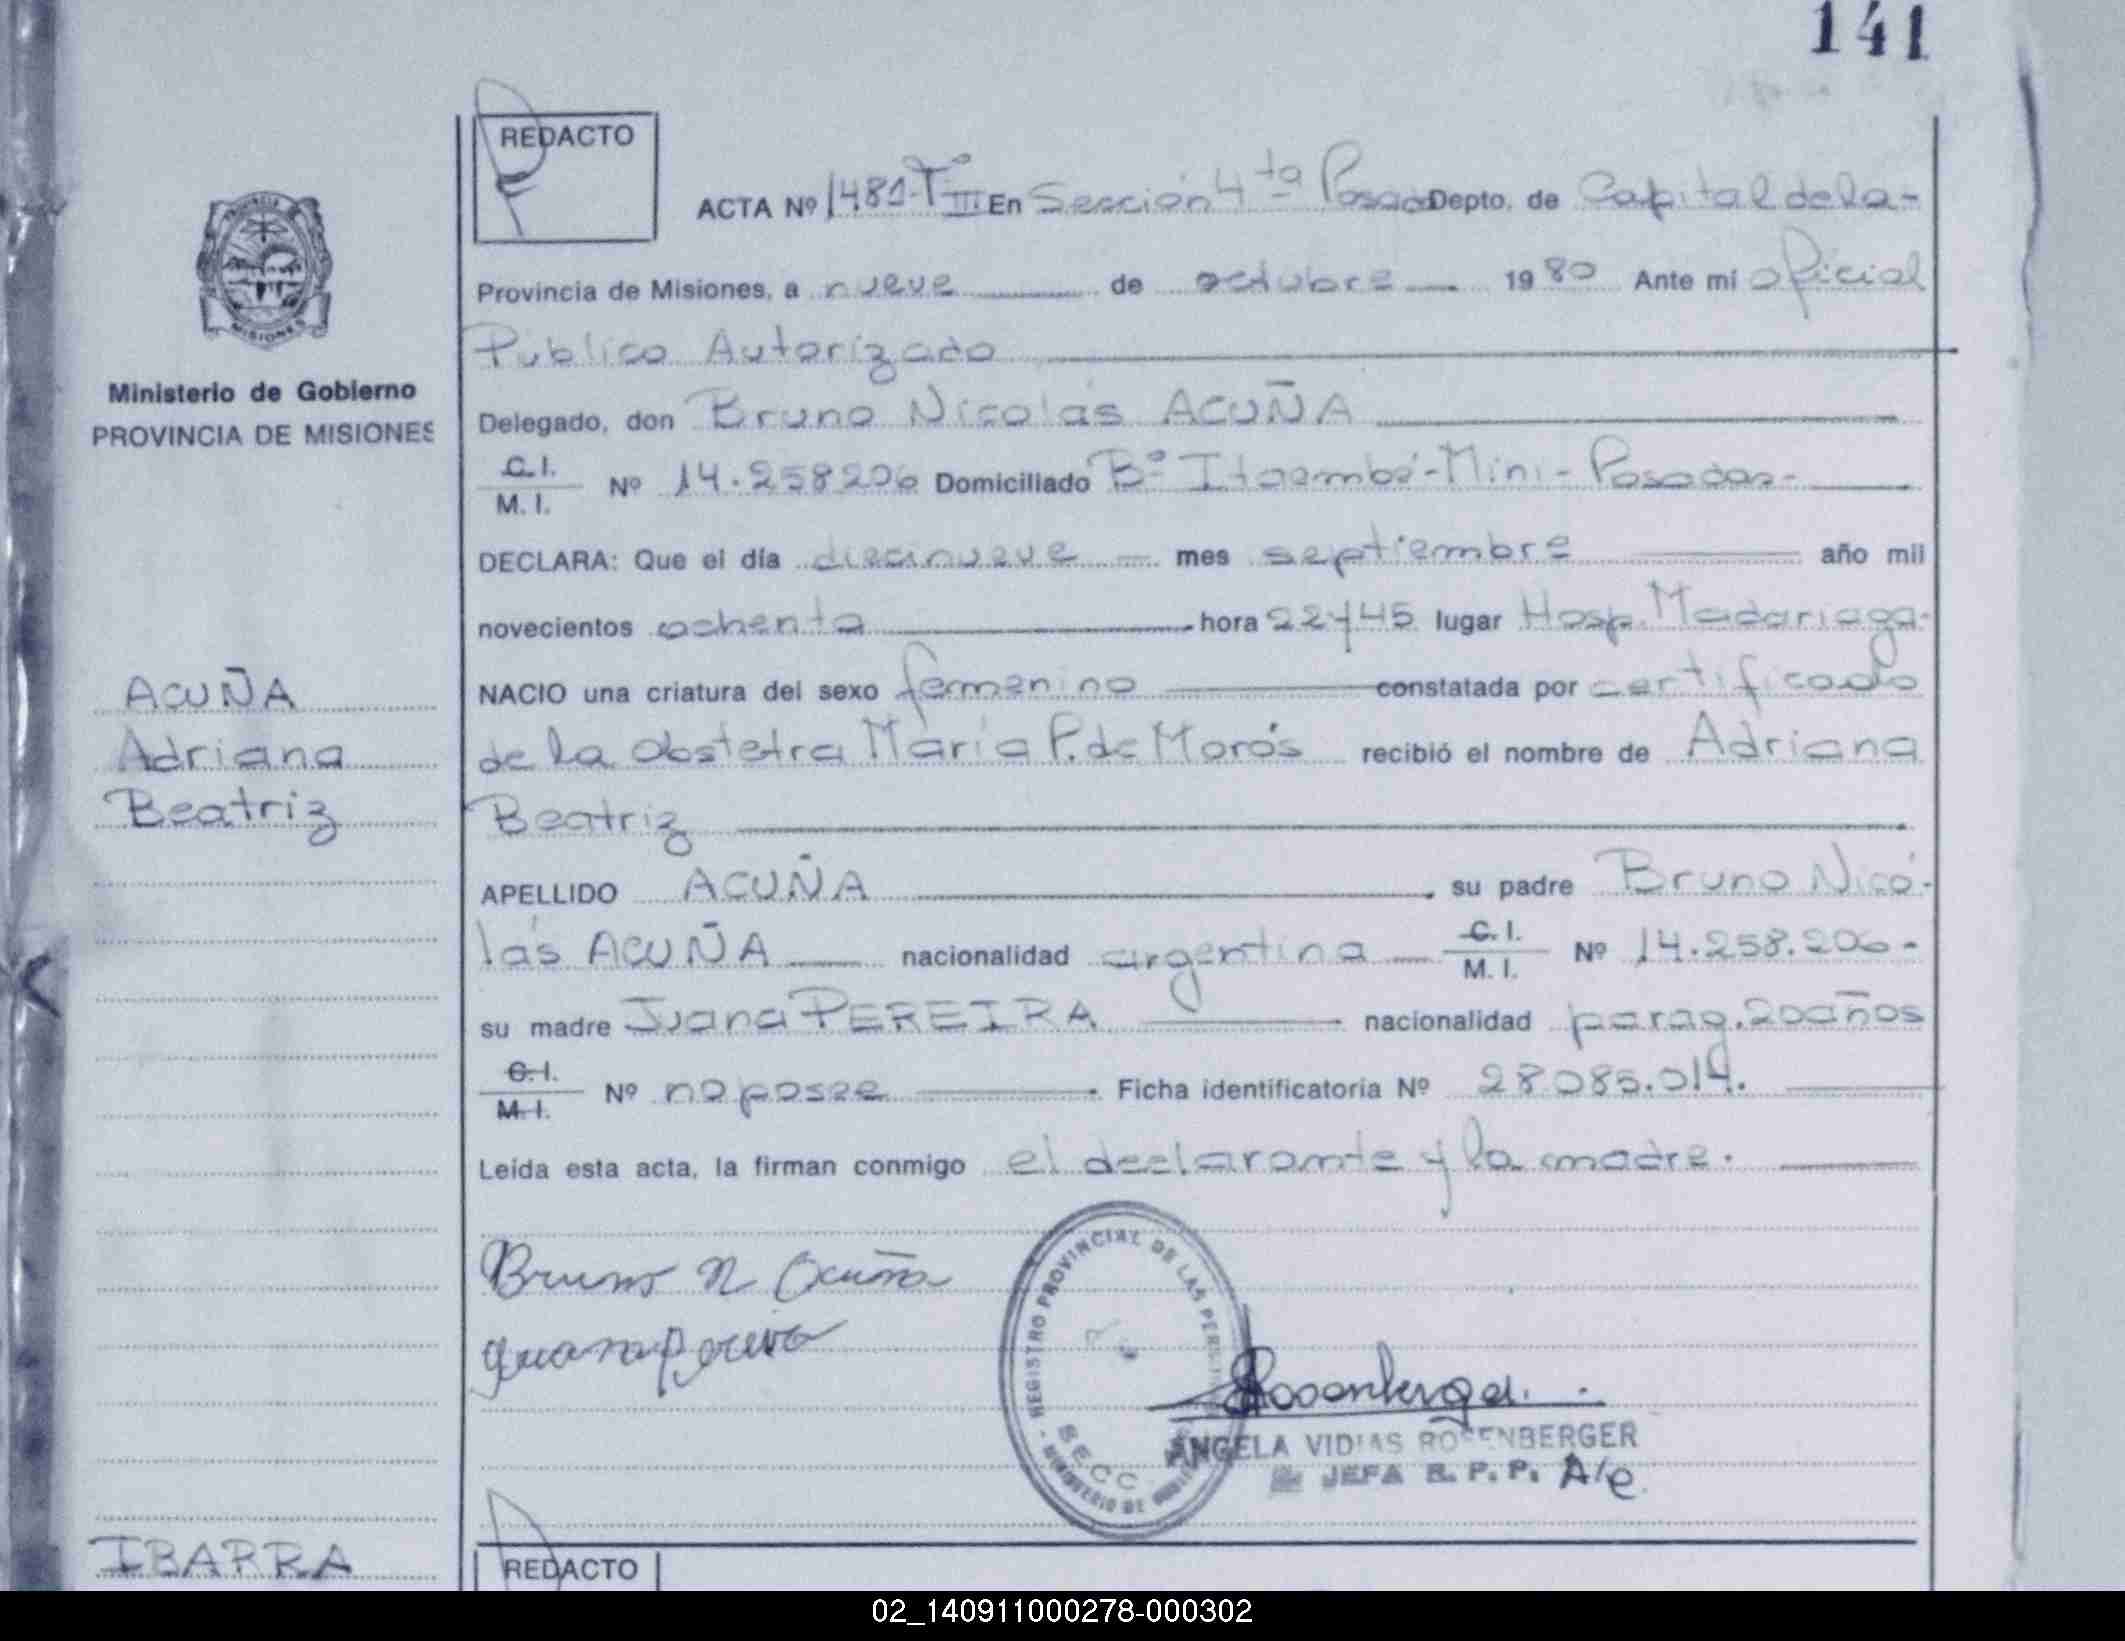 141
REDACTO
ACTA Nº 1481-Tº III En Sección 4ta Posadas Depto. de Capital de la-
Provincia de Misiones, a nueve de octubre 1980 Ante mi oficial
Publico Autorizado
Delegado, don Bruno Nicolás ACUÑA
C.I.
M.I. Nº 14.258206 Domiciliado Bº Itaembé-Mini-Posadas-
DECLARA: Que el día diecinueve mes septiembre año mil
novecientos ochenta hora 22y45 lugar Hosp. Madariaga-
NACIO una criatura del sexo femenino constatada por certificado
de la Obstetra María P. de Morós recibió el nombre de Adriana
Beatriz
APELLIDO ACUÑA su padre Bruno Nicó-
lás ACUÑA nacionalidad argentina C.I.
M.I. Nº 14.258.206-
su madre Juana PEREIRA nacionalidad parag. 20años
C.I.
M.I. Nº no posee Ficha identificatoria Nº 28085.014.
Leída esta acta, la firman conmigo el declarante y la madre.
Bruno N Acuña
Juana Pereira
REGISTRO PROVINCIAL DE LAS PERSONAS
MINISTERIO DE
SECC
Rosenberger
ANGELA VIDIAS ROSENBERGER
JEFA R.P.P. A/c
REDACTO
Ministerio de Gobierno
PROVINCIA DE MISIONES
ACUÑA
Adriana
Beatriz
IBARRA
02_140911000278-000302